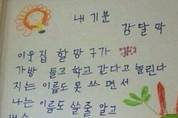 내 기분
강달막
이웃집 할망구가
가방 들고 학교 간다고 놀린다
지는 이름도 못 쓰면서
나는 이름도 쓸 줄 알고